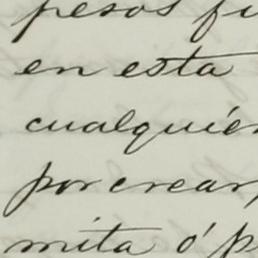 pesos fi
en esta
cualquier
por crear,
mita ó p